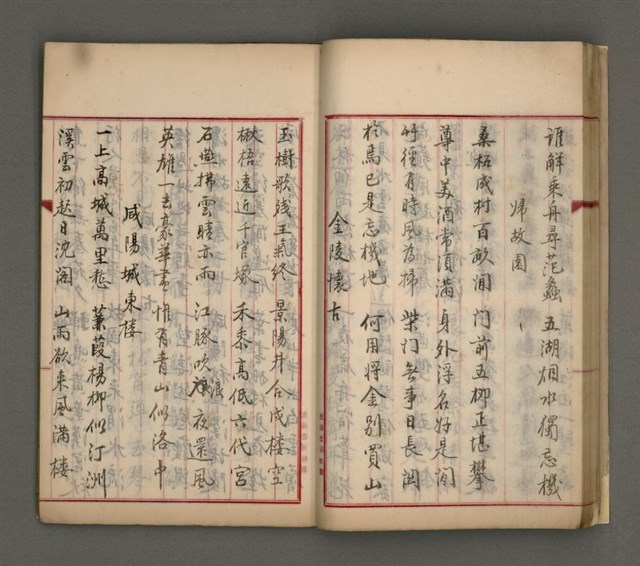 誰解乗舟尋范蠡　五湖烟水獨忘機
歸故園
桑柘成村百畝間　門前五柳正堪攀
尊中美酒常須滿　身外浮名好是閒
竹徑有時風為掃　柴門無事日長関
於焉已是忘機地　何用將金別買山
金陵懷古
玉樹歌殘王氣終　景陽井合戍樓空
楸梧遠近千官塚　禾黍高低六代宮
石燕拂雲晴亦雨　江豚吹浪夜還風
英雄一去豪華盡　惟有青山似洛中
咸陽城東樓
一上高城萬里愁　蒹葭楊柳似汀洲
溪雲初起日沈閣　山雨欲来風滿樓